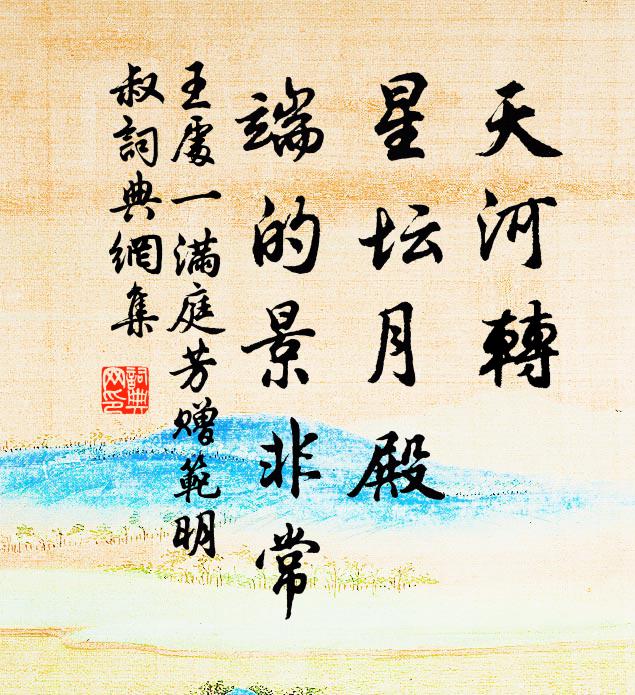 天河轉
星坛月殿
端的景非常
王處一满庭芳赠範明
叔詞典網集
詞典网印